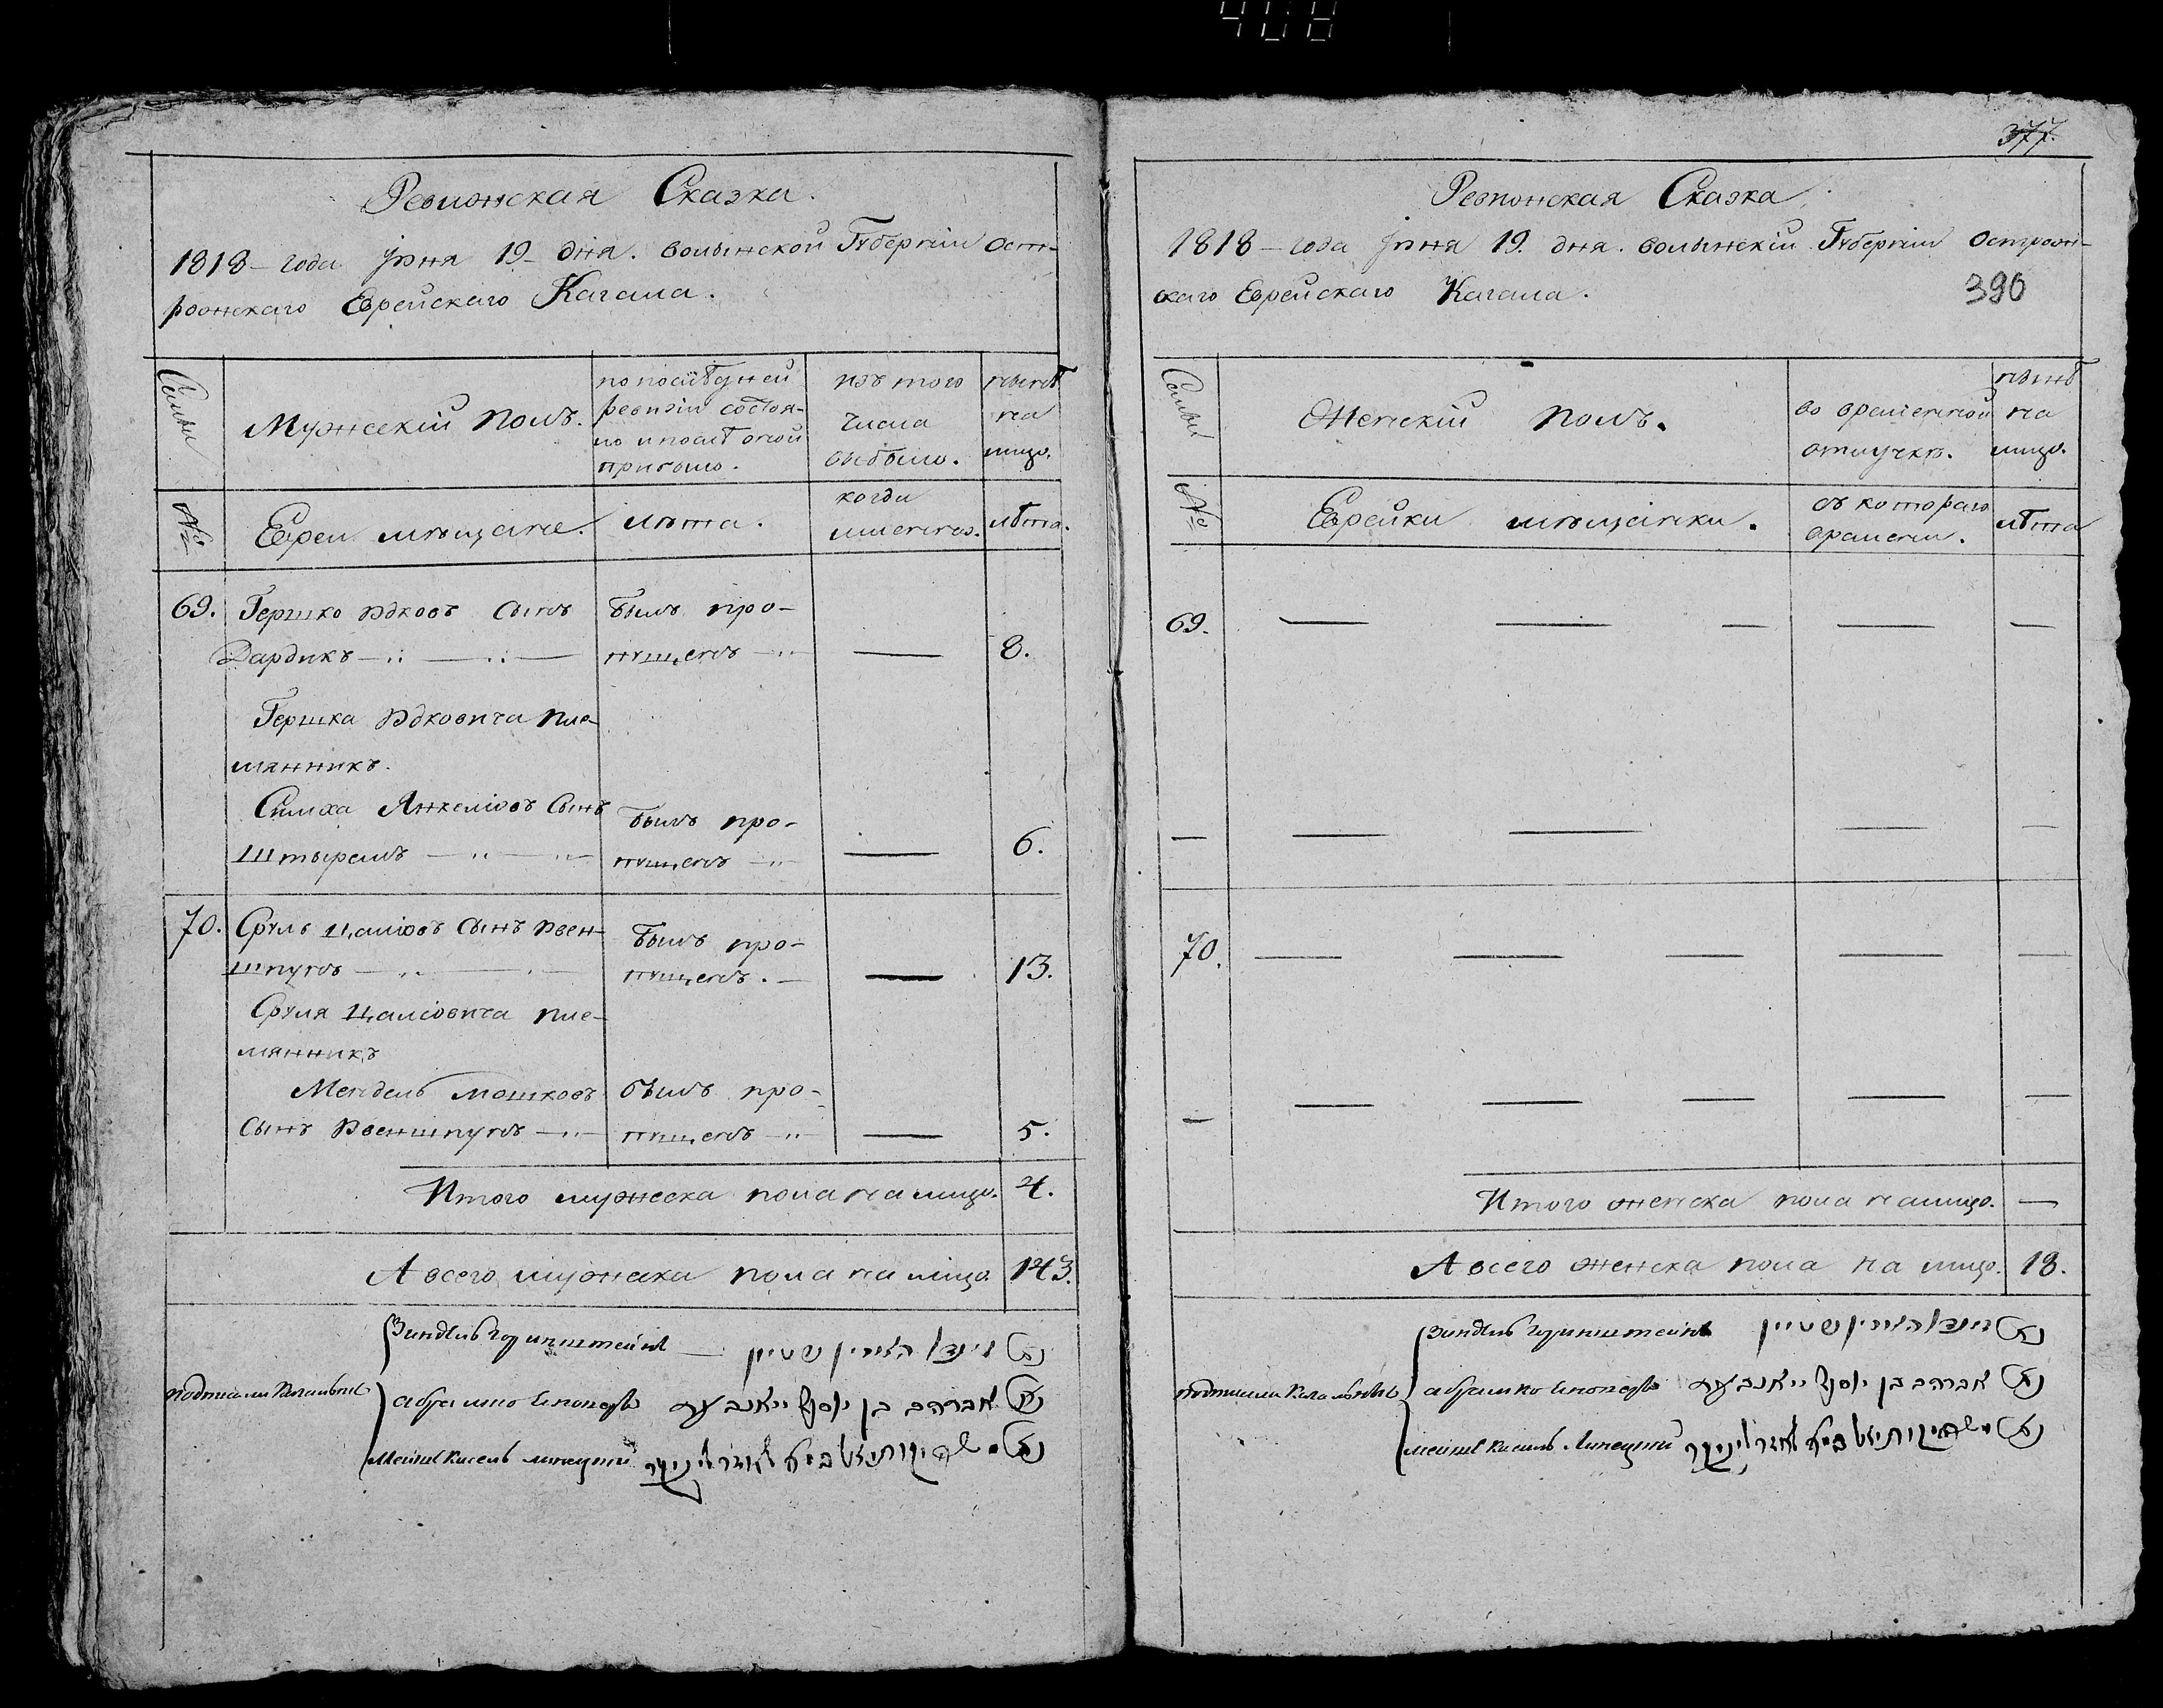 408
Ревизская Сказка.
1818 – года Іюня 19 – дня. волынской Губерніи Ост-
ровскаго Еврейскаго Кагала.
Семьи
Мужескій полъ.
по послѣдней
ревизіи состоя-
ло и послѣ оной
прибыло.
изъ того
числа
выбыло.
нынѣ
на
лицо.
№
Евреи мѣщане.
лѣта.
когда
именно.
лѣта.
69. Гершко Идковъ Сынъ Былъ про-
Дардикъ пущенъ — 8.
Гершка Идковича пле-
мянникъ.
Симха Янкеліовъ Сынъ Былъ про-
Штырелъ пущенъ — 6.
70. Сруль Цаліовъ Сынъ Вен- Былъ про-
шпунъ пущенъ. — 13.
Сруля Цаліовича пле-
мянникъ
Мендель Мошковъ былъ про-
Сынъ Веншпунъ пущенъ — 5.
Итого мужеска пола на лицо. 4.
А всего мужеска пола на лицо. 143.
подписали Кагальные
Зиндель Горинштейнъ
Абрамко
Мейше Кисель Липецкий
אברהם בן יוסף
377.
Ревизская Сказка
1818 – года Іюня 19. дня. волынскій Губерніи Островс-
каго Еврейскаго Кагала.
390
Семьи
Женскій полъ.
во временной
отлучкѣ.
нынѣ
на
лицо.
№
Еврейки мѣщанки.
съ котораго
времени.
лѣта
69. — — — — —
— — — — —
70. — — — — —
— — — — — —
Итого женска пола на лицо. —
А всего женска пола на лицо. 18.
подписали Кагальные
Зиндель Горинштейнъ
Абрамко
Мейше Кисель Липецкий
אברהם בן יוסף